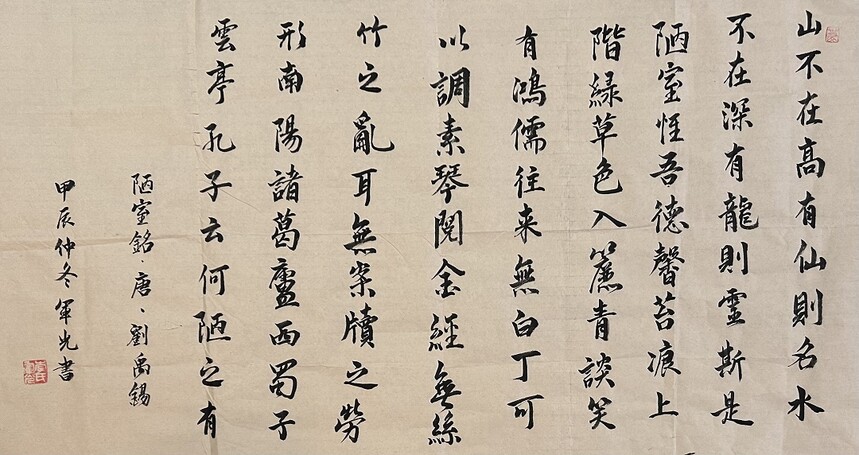 山不在高有仙則名水
不在深有龍則靈斯是
陋室惟吾德馨苔痕上
階緑草色入簾青談笑
有鴻儒往来無白丁可
以調素琴閱金經無絲
竹之亂耳無案牘之勞
形南陽諸葛廬西蜀子
雲亭孔子云何陋之有
陋室銘·唐、劉禹錫
甲辰仲冬軍光書